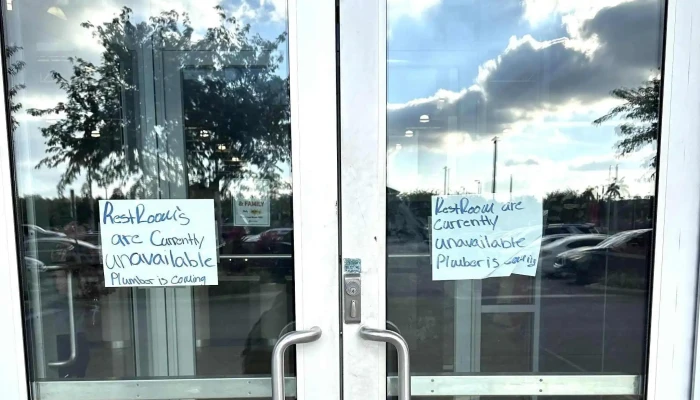 RestRoom's
are Currently
unavailable
Plumber is coming
& FAMILY
RestRoom are
currently
unavailable
Plumber is coming